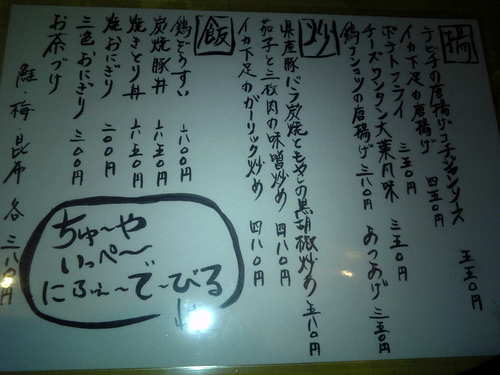 揚
テビチの唐揚げコチュジャンソース 五五〇円
イカ下足の唐揚げ 四五〇円
ポテトフライ 三五〇円
チーズワンタン大葉風味 三五〇円
鶏ナンコツの唐揚げ 三八〇円 あつあげ 三五〇円
炒
県産豚バラ炭焼ともやしの黒胡椒炒め 五八〇円
茄子と三枚肉の味噌炒め 四八〇円
イカ下足のガーリック炒め 四八〇円
飯
鶏ぞうすい 六八〇円
炭焼豚丼 六五〇円
焼きとり丼 六五〇円
焼おにぎり 二〇〇円
三色おにぎり 三〇〇円
お茶づけ
鮭 梅 昆布 各 三八〇円
ちゅ〜や
いっぺ〜
にふぇ〜で〜びる